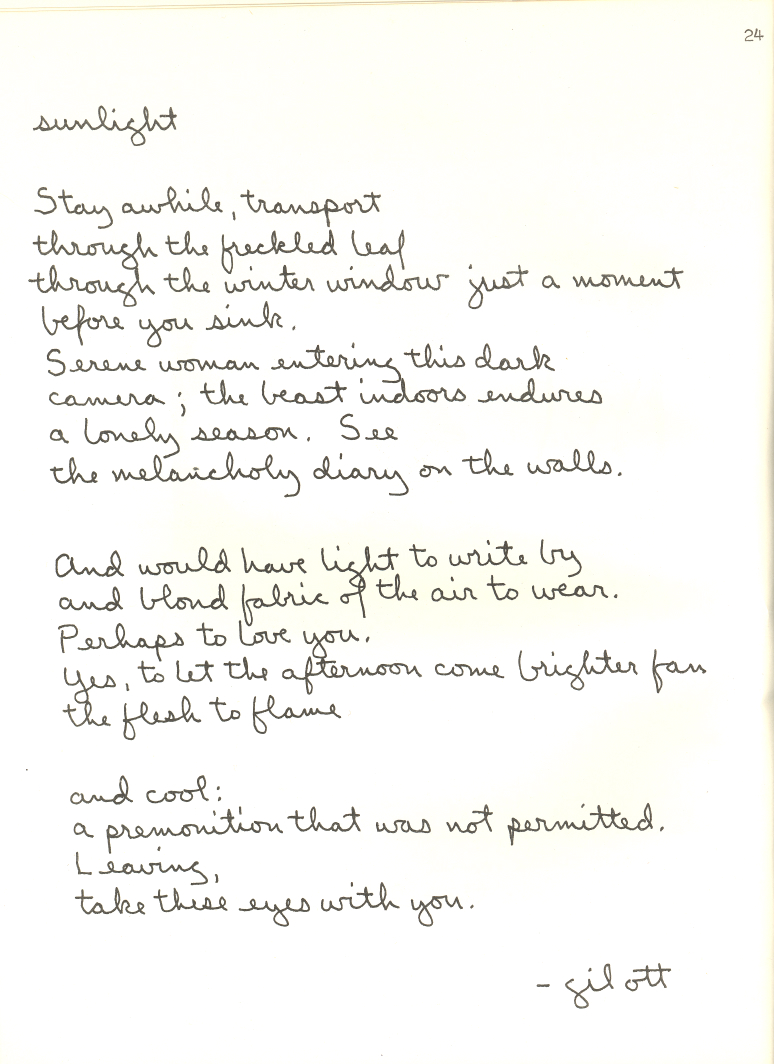 24
sunlight
Stay awhile, transport
through the freckled leaf
through the winter window just a moment
before you sink.
Serene woman entering this dark
camera; the beast indoors endures
a lonely season. See
the melancholy diary on the walls.
And would have light to write by
and blond fabric of the air to wear.
Perhaps to love you.
Yes, to let the afternoon come brighter fan
the flesh to flame
and cool:
a premonition that was not permitted.
Leaving,
take these eyes with you.
- gil ott